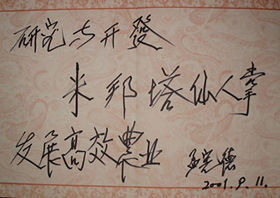 研究与开發
米邦塔仙人掌
发展高效農业
2001.9.11.